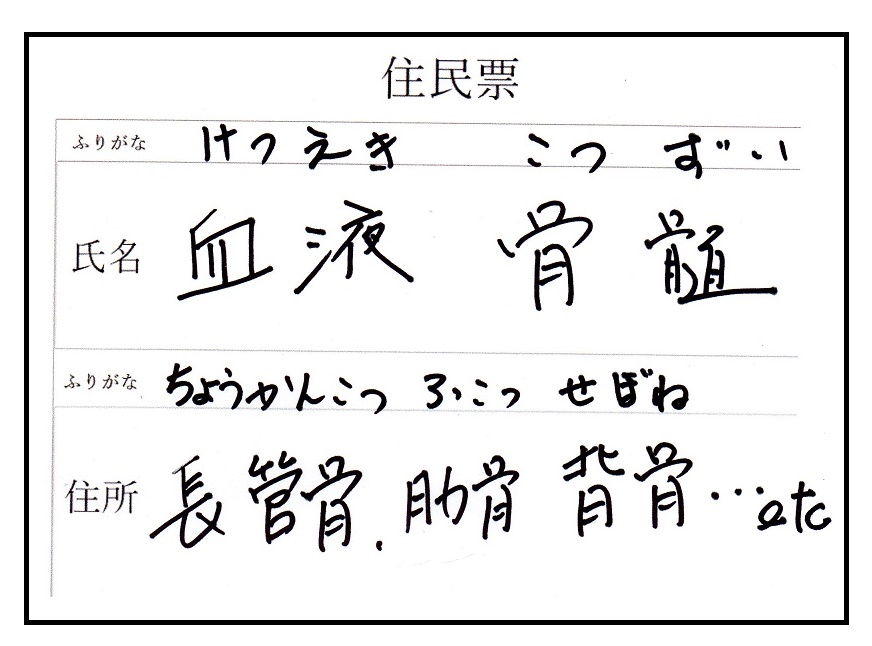 住民票
ふりがな けつ えき こつ ずい
氏名 血液 骨髄
ふりがな ちょうかんこつ ろっこつ せぼね
住所 長管骨.肋骨 背骨…etc